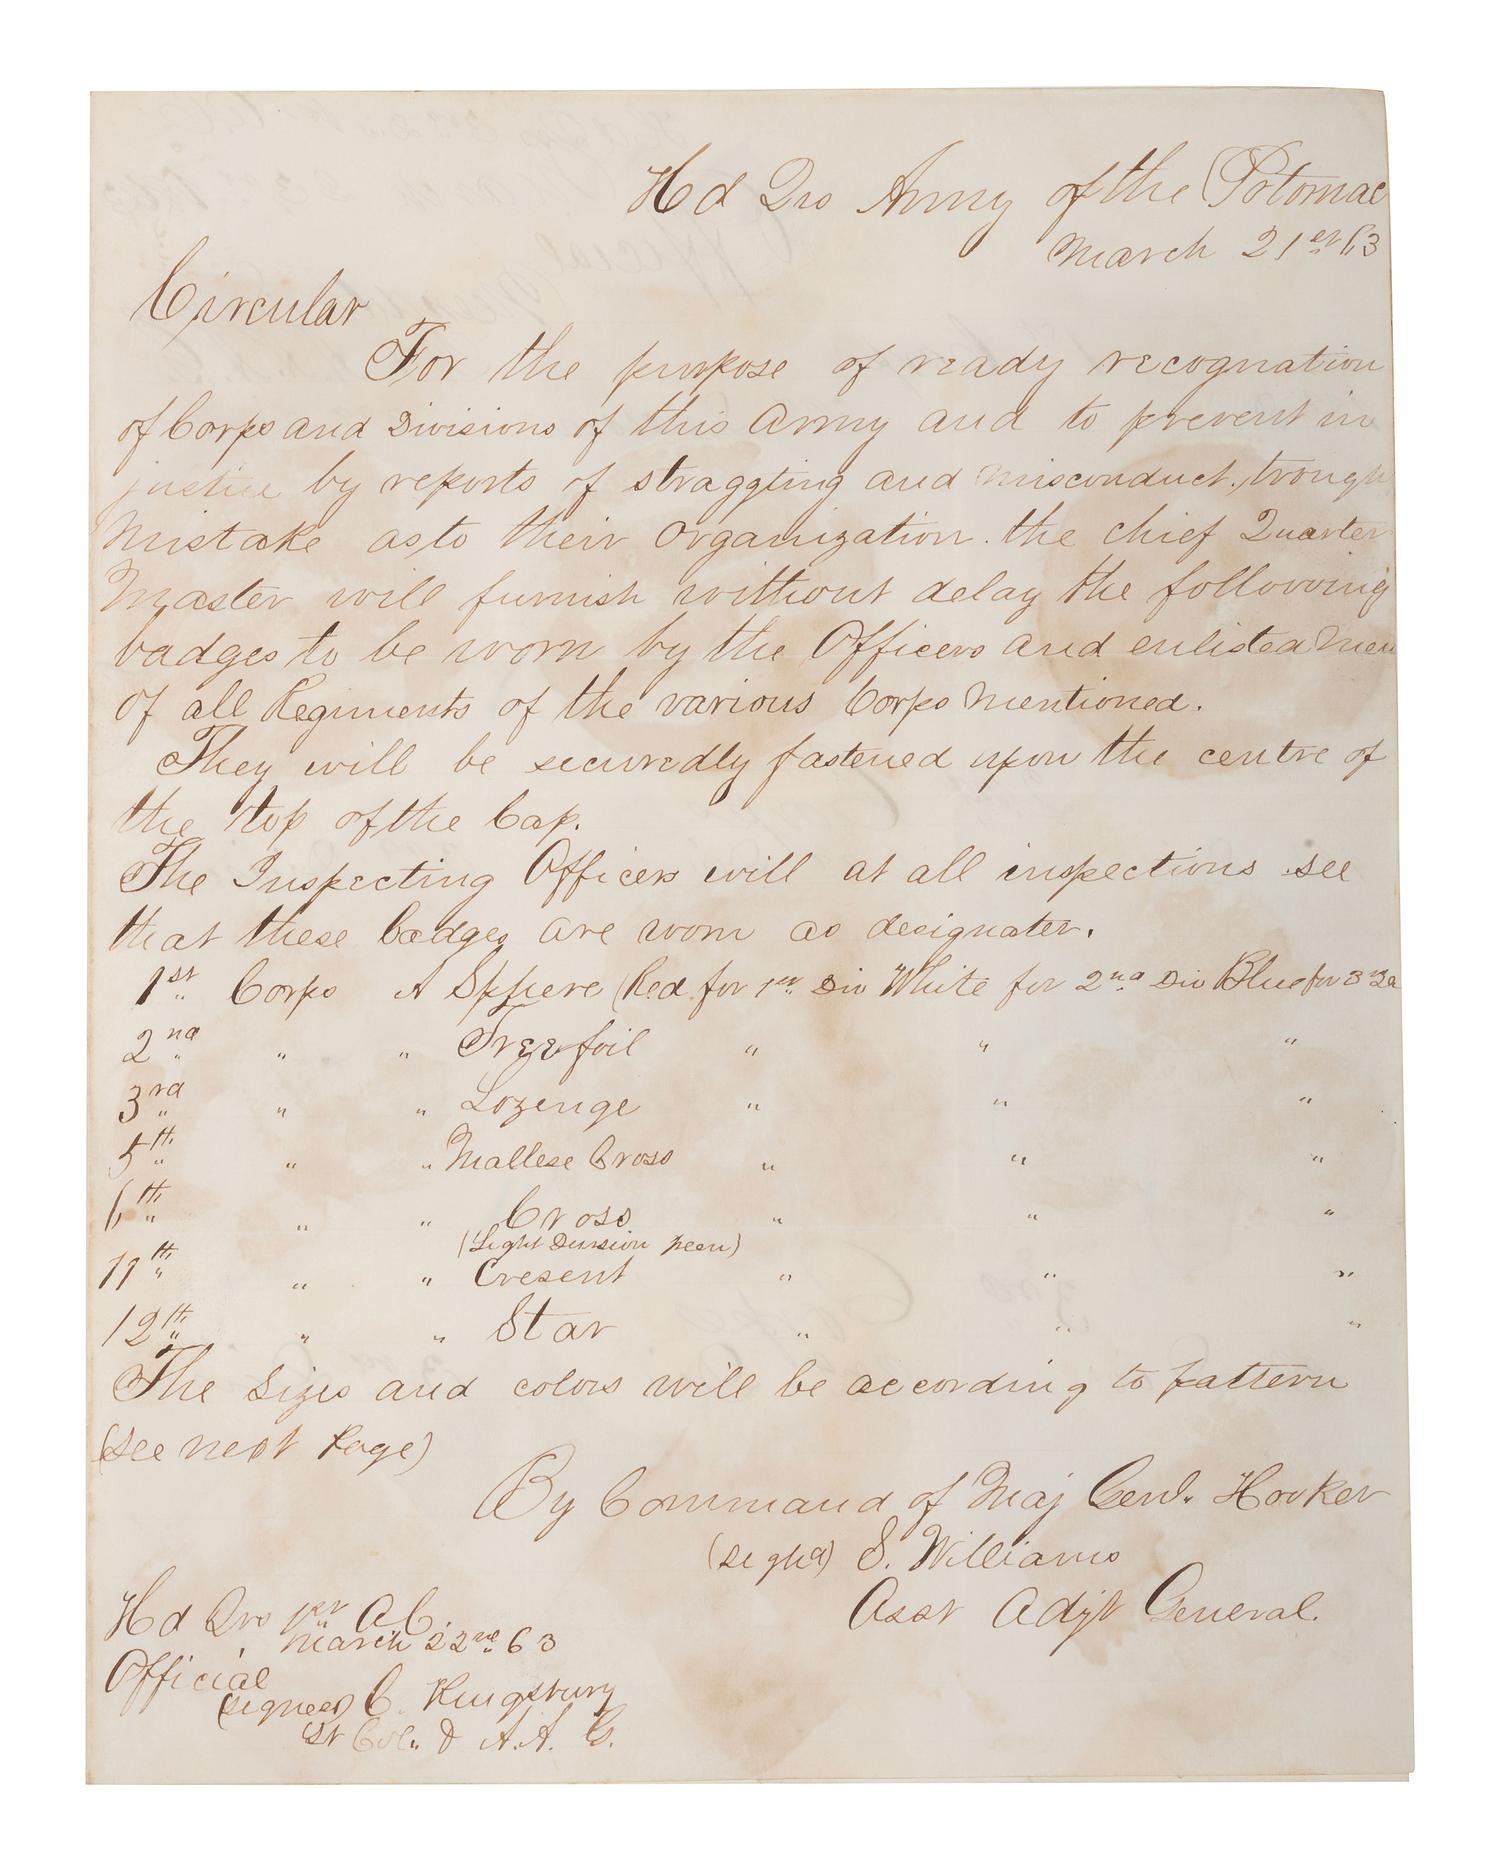 Hd Qrs Army of the Potomac
March 21st 63
Circular
For the purpose of ready recognation
of Corps and Divisions of this Army and to prevent in
justice by reports of straggling and misconduct, trough
Mistake as to their Organization. the chief Quarter
Master will furnish without delay the following
badges to be worn by the Officers and enlisted Men
of all Regiments of the various Corps Mentioned.
They will be securedly fastened upon the centre of
the top of the Cap.
The Inspecting Officers will at all inspections see
that these badges are worn as designater.
1st Corps A Sphere (Red for 1st Div White for 2nd Div Blue for 3rd
2nd " " Treefoil " " "
3rd " " Lozenge " " "
5th " " Maltese Cross " " "
6th " " Cross " " "
(Light Division
11th " " Cresent " " "
12th " " Star " " "
The Sizes and colors will be according to pattern
(See next Page)
By Command of Maj Genl. Hooker
(signd) S. Williams
Asst Adjt General.
Hd Qrs 1st A.C.
March 22nd 63
Official
(signed) C. Kingsbury
Lt Col. & A.A. G.